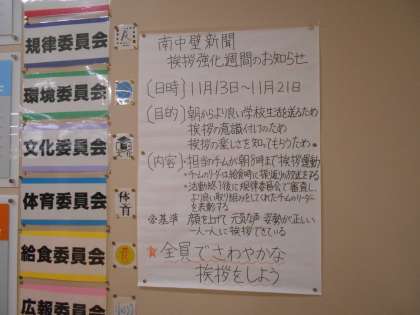 規律委員会
環境委員会
文化委員会
体育委員会
給食委員会
広報委員会
体育
南中壁新聞
挨拶強化週間のお知らせ
〔日時〕11月13日～11月21日
〔目的〕朝からより良い学校生活を送るため
挨拶の意識付けのため
挨拶の楽しさを知ってもらうため。
〔内容〕・担当のチームが朝8時まで挨拶運動
・チームのリーダーは給食時に振返り放送をする
・活動終了後に規律委員会で審査し、
より良い取り組みをしてくれたチームのリーダー
を表彰する
審基準 顔を上げて 元気な声 姿勢が正しい
一人一人に挨拶できている
全員でさわやかな
挨拶をしよう